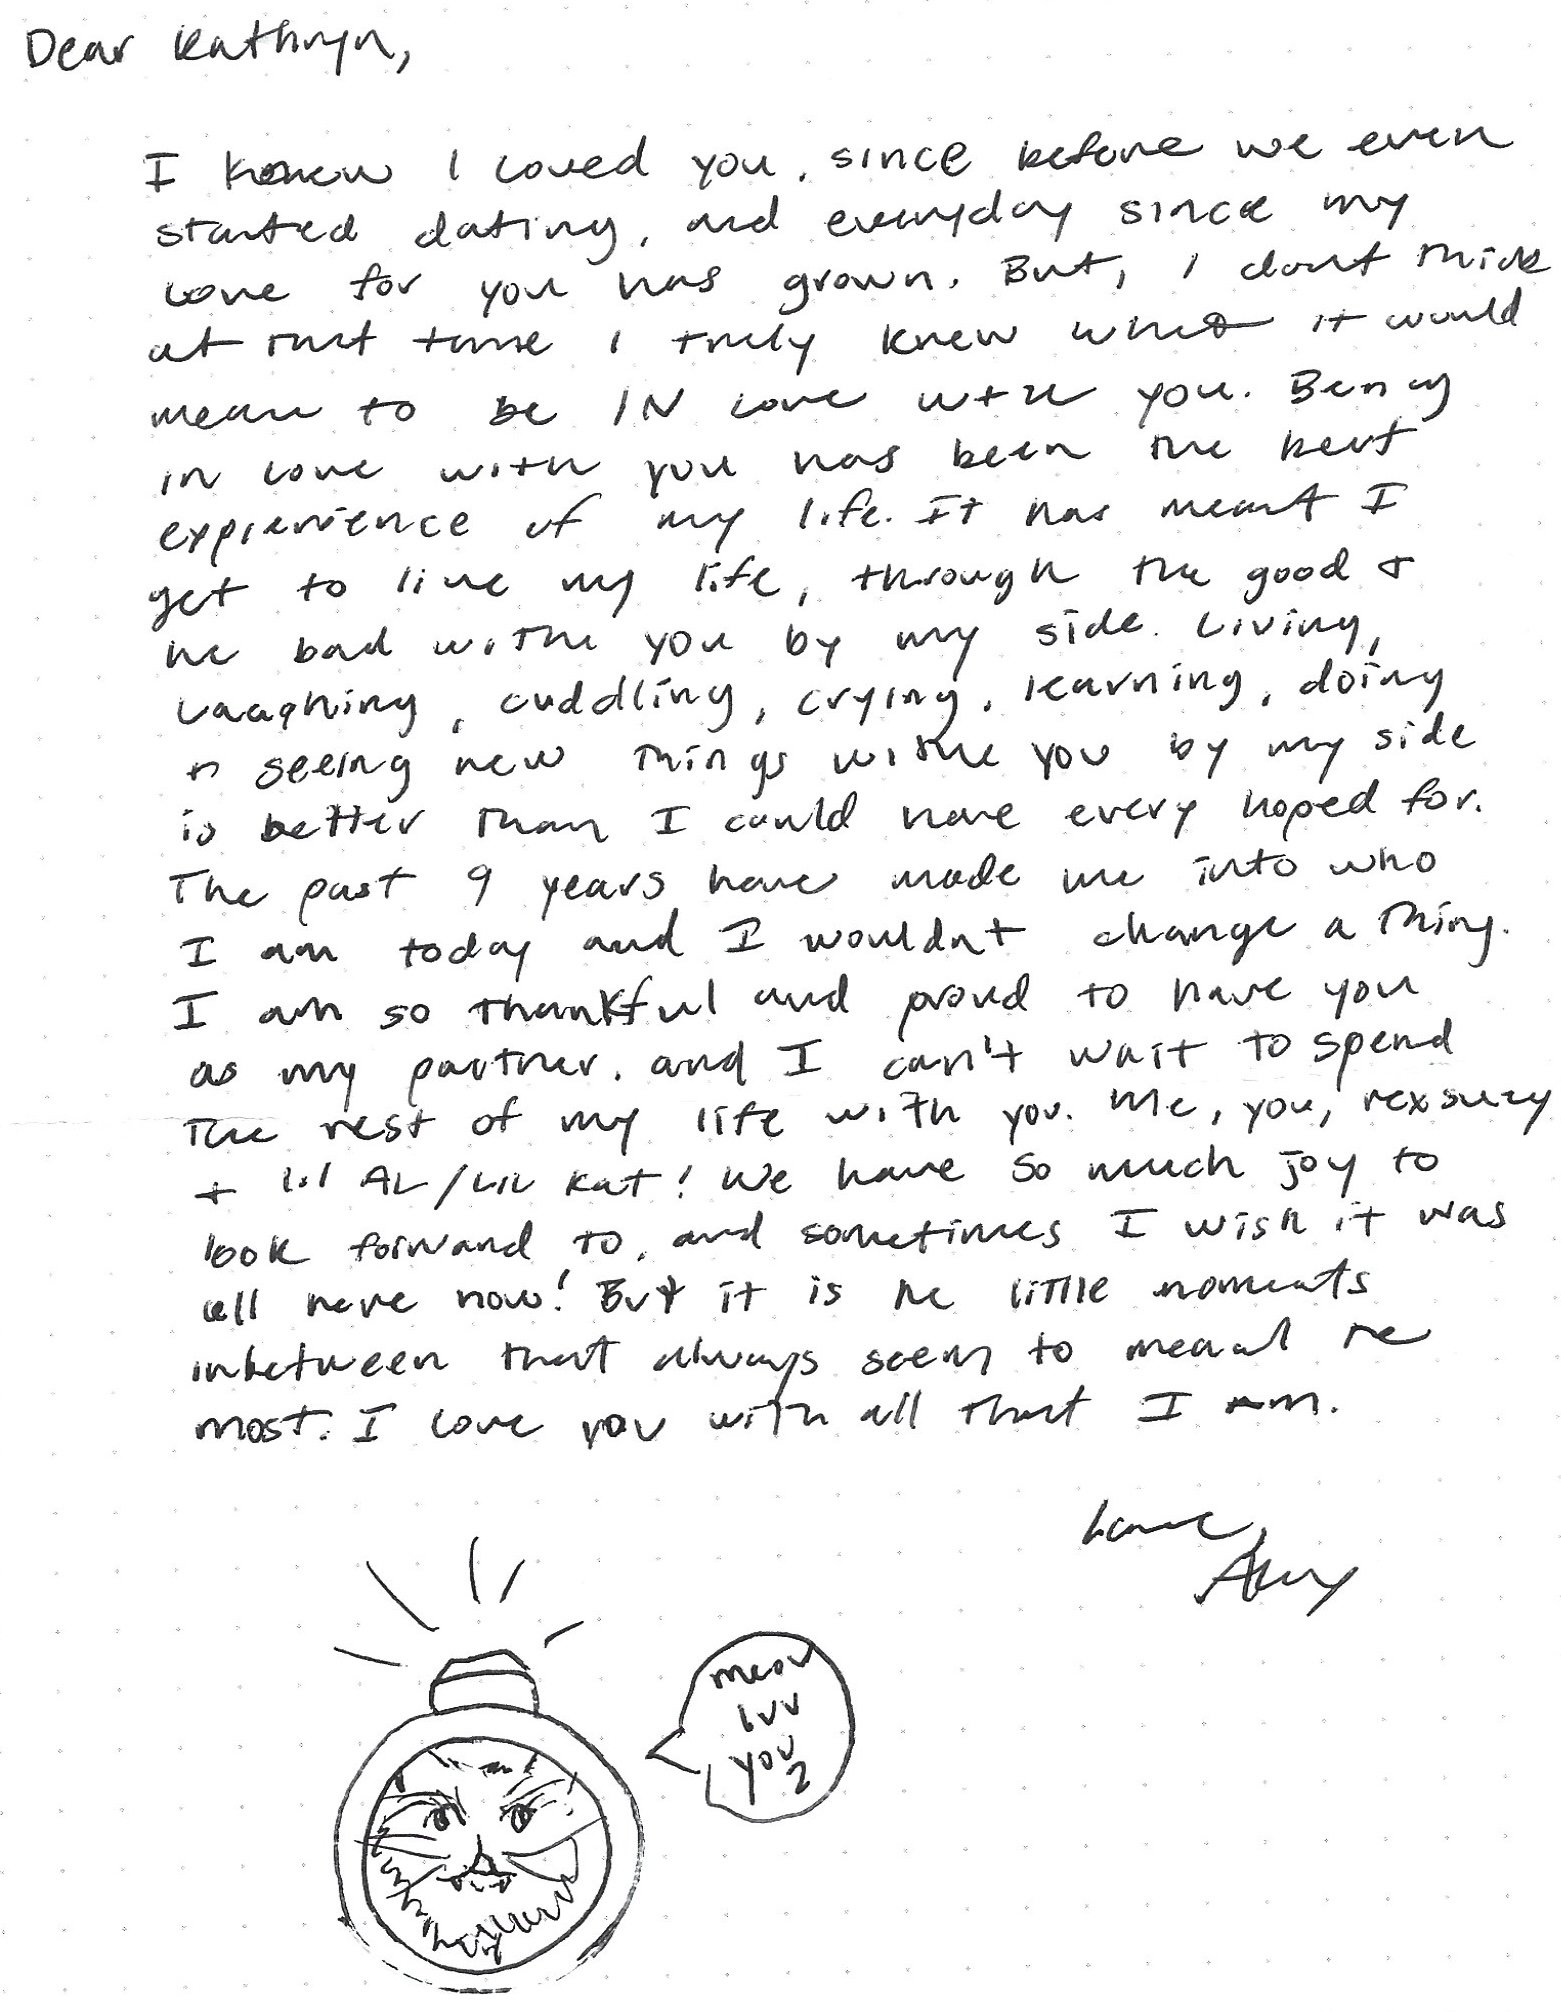 Dear Kathryn,
I knew I loved you, since before we even
started dating, and everyday since my
love for you has grown. But, I dont think
at that time I truly knew what it would
mean to be IN love with you. Being
in love with you has been the best
expierience of my life. It has meant I
get to live my life, through the good +
he bad withe you by my side. Living,
Laughing, cuddling, crying, learning, doing
+ seeing new things withe you by my side
is better than I could have every hoped for.
The past 9 years have made me into who
I am today and I wouldnt change a thing.
I am so thankful and proud to have you
as my partner, and I can't wait to spend
the rest of my life with you. Me, you,
+ lil AL/LIL Kat! We have so much joy to
look forward to, and sometimes I wish it was
all here now! But it is he little moments
inbetween that always seem to mean he
most. I love you with all that I am.
Love,
meow
luv
you
2